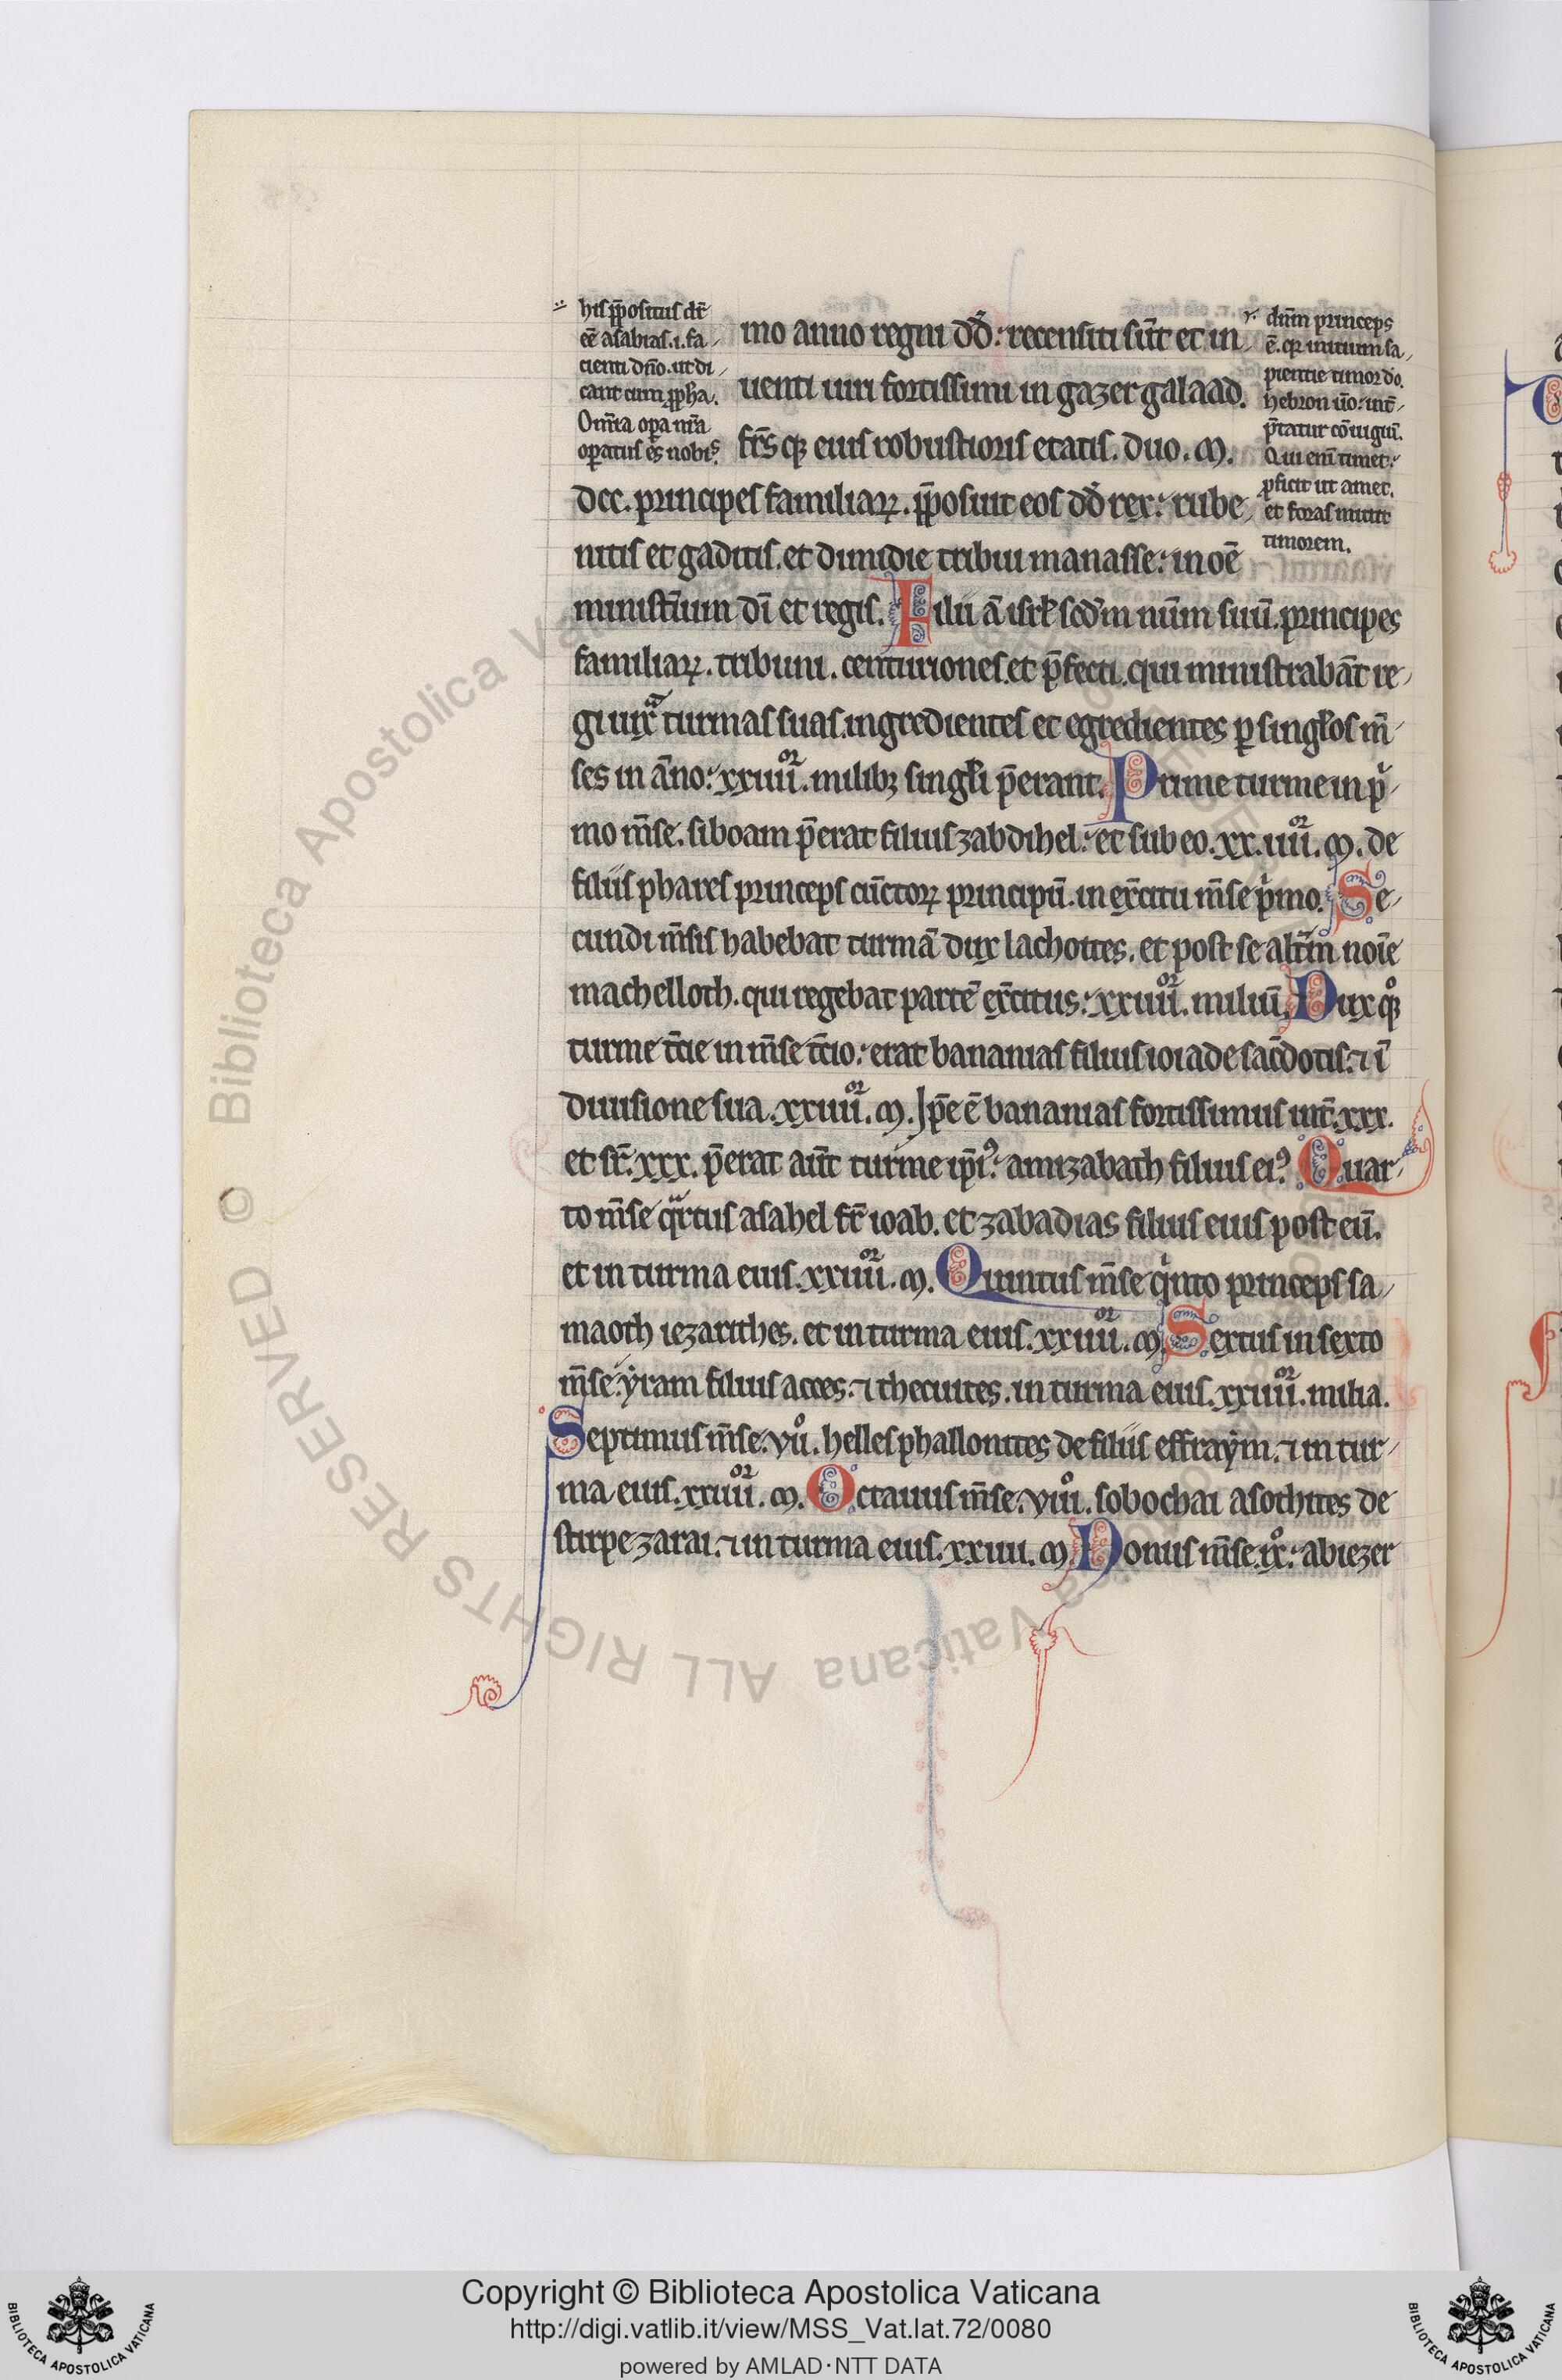 his p̄positus dr̄
eē asabias .i. fa
cienti dn̄o. ut di
cant cum ꝓpħa.
Om̄ia opa nr̄a
opatus es nobis.
mo anno regni dd̄: recensiti sūt et in
uenti uiri fortissimi in gazer galaad.
fr̄s qꝫ eius robustioris etatis. duo. M.
dcc. principes familiaꝝ. p̄posuit eos dd̄ rex: rube
nitis et gaditis. et dimidie tribui manasse: in oē
ministīum dī et regis. Filii ā isrł scd̄m nūm suū. principes
familiaꝝ. tribuni. centuriones. et p̄fecti. qui ministrabāt re
gi iuxᵃ turmas suas. ingredientes et egredientes ꝑ singłos m̄
ses in āno: xxiiiioꝛ. milibꝫ singłi p̄erant. Prime turme in pͥ
mo m̄se. siboam p̄erat filius zabdihel: et sub eo. xx. iiiioꝛ. M. de
filiis phares princeps cūctoꝝ principū. in ex̄citu m̄se pͥmo. Se
cundi m̄sis habebat turmā dux lachottes. et post se alt̄m noīe
machelloth. qui regebat partē ex̄citus: xxiiiioꝛ. miliū. Dux qꝫͦ
turme t̄cie in m̄se t̄cio: erat bananias filius ioiade sac̄dotis: ⁊ ī
diuisione sua. xxiiiioꝛ. M. Ip̄e ē bananias fortissimus int̄. xxx.
et sr̄. xxx. p̄erat aūt turme ip̄iꝰ: amizabath filius eiꝰ Quar
to m̄se qᵃrtus asahel fr̄ ioab. et zabadias filius eius post eū.
et in turma eius. xxiiiioꝛ. M. Quintus m̄se qͥnto princeps sa
maoth iezarithes. et in turma eius. xxiiiioꝛ. M. Sextus in sexto
m̄se. yram filius acces: ⁊ thecuites. in turma eius. xxiiiioꝛ. milia.
Septimus m̄se. vııͦ. helles phallonites de filiis effraym. ⁊ in tur
ma eius. xxiiiioꝛ. M. Octauus m̄se. viiiͦ. sobochai asothites de
stirpe zarai. ⁊ in turma eius. xxiiii. M. Nonus m̄se. ixͦ: abiezer
dūm princeps
ē. qꝛ initium sa
pientie timor do.
hebron ūo: int̄
p̄tatur cōiugiū.
Qui enī timet:
ꝓficit ut amet.
et foras mittit
timorem.
© Biblioteca Apostolica Vaticana ALL RIGHTS RESERVED
BIBLIOTECA APOSTOLICA VATICANA
Copyright © Biblioteca Apostolica Vaticana
http://digi.vatlib.it/view/MSS_Vat.lat.72/0080
powered by AMLAD·NTT DATA
BIBLIOTECA APOSTOLICA VATICANA